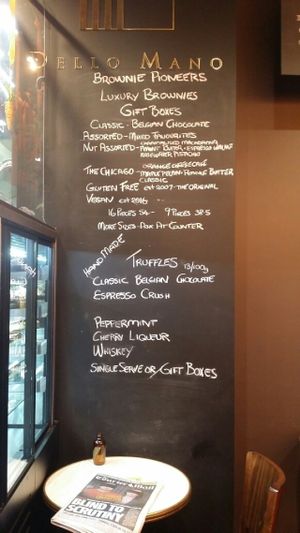 DELLO MANO
BROWNIE PIONEERS
LUXURY BROWNIES
GIFT BOXES
CLASSIC - BELGIAN CHOCOLATE
ASSORTED - MIXED FAVOURITES
CARAMELISED MACADAMIA
NUT ASSORTED - PEANUT BUTTER - ESPRESSO WALNUT
ROSEWATER PISTACHIO
ORANGE CHEESECAKE
THE CHICAGO - MAPLE PECAN - PEANUT BUTTER
CLASSIC
GLUTEN FREE EST 2007 - THE ORIGINAL
VEGAN EST 2016
16 PIECES 54 - 9 PIECES 38.5
MORE SIZES - ASK AT COUNTER
HAND MADE
TRUFFLES 13/100g
CLASSIC BELGIAN CHOCOLATE
ESPRESSO CRUSH
PEPPERMINT
CHERRY LIQUEUR
WHISKEY
SINGLE SERVE OR/GIFT BOXES
Courier Mail
BLIND TO
SCRUTINY